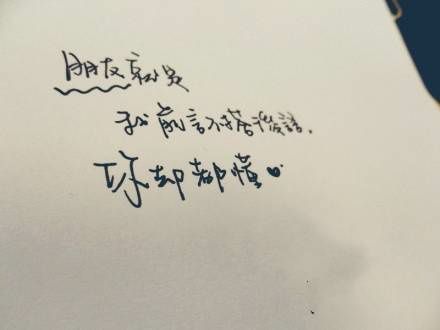 朋友就是
我前言不搭後語,
你却都懂